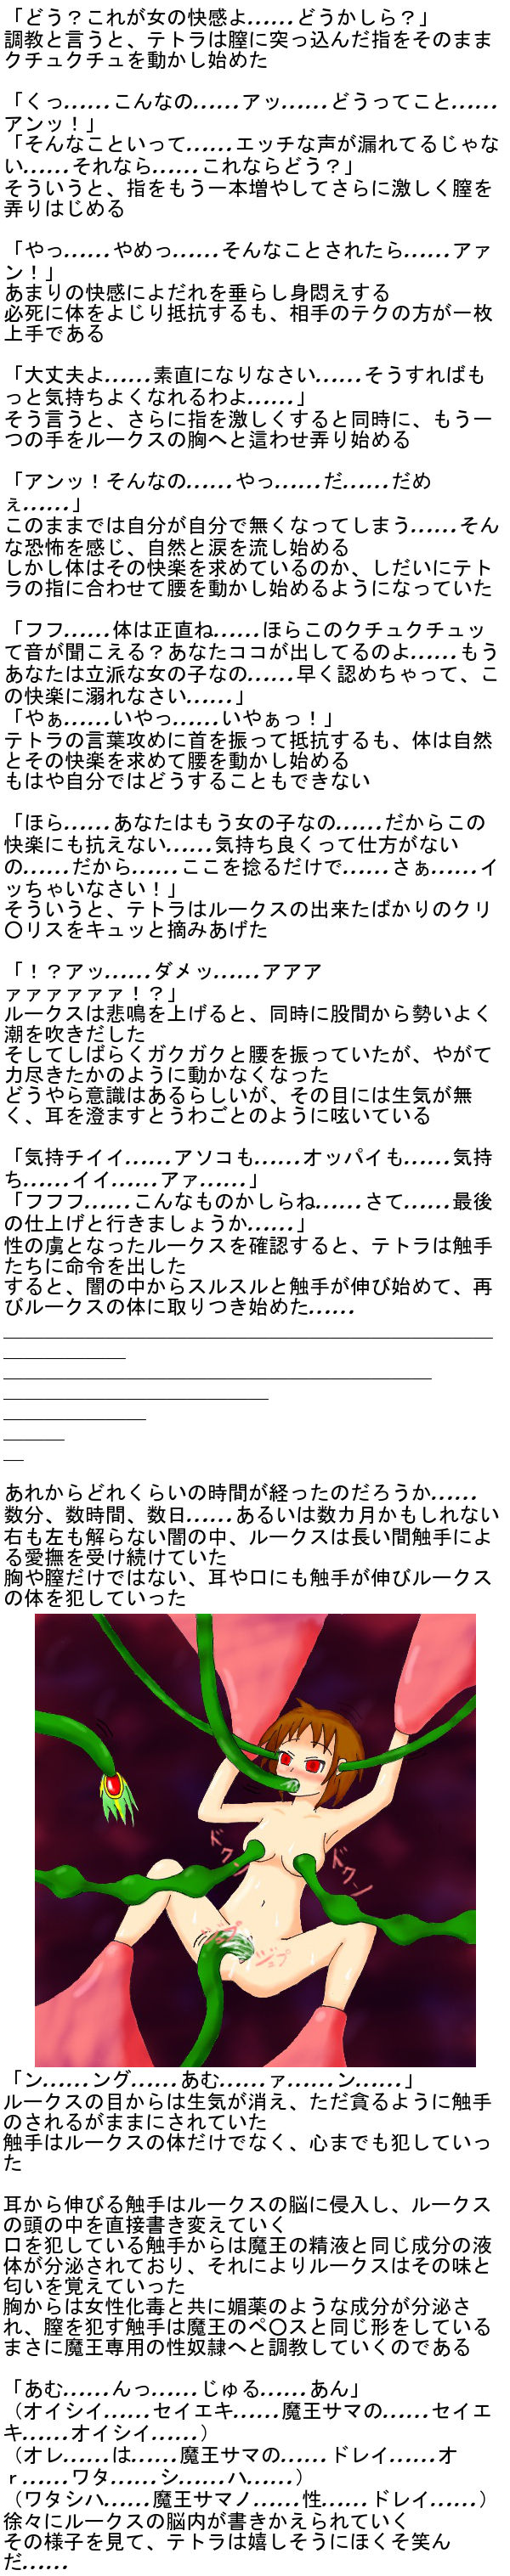 「どう？これが女の快感よ……どうかしら？」
調教と言うと、テトラは膣に突っ込んだ指をそのまま
クチュクチュを動かし始めた
「くっ……こんなの……アッ……どうってこと……
アンッ！」
「そんなこといって……エッチな声が漏れてるじゃな
い……それなら……これならどう？」
そういうと、指をもう一本増やしてさらに激しく膣を
弄りはじめる
「やっ……やめっ……そんなことされたら……アァ
ン！」
あまりの快感によだれを垂らし身悶えする
必死に体をよじり抵抗するも、相手のテクの方が一枚
上手である
「大丈夫よ……素直になりなさい……そうすればも
っと気持ちよくなれるわよ……」
そう言うと、さらに指を激しくすると同時に、もう一
つの手をルークスの胸へと這わせ弄り始める
「アンッ！そんなの……やっ……だ……だめ
ぇ……」
このままでは自分が自分で無くなってしまう……そん
な恐怖を感じ、自然と涙を流し始める
しかし体はその快楽を求めているのか、しだいにテト
ラの指に合わせて腰を動かし始めるようになっていた
「フフ……体は正直ね……ほらこのクチュクチュッ
て音が聞こえる？あなたココが出してるのよ……もう
あなたは立派な女の子なの……早く認めちゃって、こ
の快楽に溺れなさい……」
「やぁ……いやっ……いやぁっ！」
テトラの言葉攻めに首を振って抵抗するも、体は自然
とその快楽を求めて腰を動かし始める
もはや自分ではどうすることもできない
「ほら……あなたはもう女の子なの……だからこの
快楽にも抗えない……気持ち良くって仕方がない
の……だから……ここを捻るだけで……さぁ……イ
ッちゃいなさい！」
そういうと、テトラはルークスの出来たばかりのクリ
〇リスをキュッと摘みあげた
「！？アッ……ダメッ……アアア
ァァァァァァ！？」
ルークスは悲鳴を上げると、同時に股間から勢いよく
潮を吹きだした
そしてしばらくガクガクと腰を振っていたが、やがて
力尽きたかのように動かなくなった
どうやら意識はあるらしいが、その目には生気が無
く、耳を澄ますとうわごとのように呟いている
「気持チイイ……アソコも……オッパイも……気持
ち……イイ……アァ……」
「フフフ……こんなものかしらね……さて……最後
の仕上げと行きましょうか……」
性の虜となったルークスを確認すると、テトラは触手
たちに命令を出した
すると、闇の中からスルスルと触手が伸び始めて、再
びルークスの体に取りつき始めた……
あれからどれくらいの時間が経ったのだろうか……
数分、数時間、数日……あるいは数カ月かもしれない
右も左も解らない闇の中、ルークスは長い間触手によ
る愛撫を受け続けていた
胸や膣だけではない、耳や口にも触手が伸びルークス
の体を犯していった
ドクン
ドクン
ジュプ
ジュプ
「ン……ング……あむ……ァ……ン……」
ルークスの目からは生気が消え、ただ貪るように触手
のされるがままにされていた
触手はルークスの体だけでなく、心までも犯していっ
た
耳から伸びる触手はルークスの脳に侵入し、ルークス
の頭の中を直接書き変えていく
口を犯している触手からは魔王の精液と同じ成分の液
体が分泌されており、それによりルークスはその味と
匂いを覚えていった
胸からは女性化毒と共に媚薬のような成分が分泌さ
れ、膣を犯す触手は魔王のペ〇スと同じ形をしている
まさに魔王専用の性奴隷へと調教していくのである
「あむ……んっ……じゅる……あん」
（オイシイ……セイエキ……魔王サマの……セイエ
キ……オイシイ……）
（オレ……は……魔王サマの……ドレイ……オ
ｒ……ワタ……シ……ハ……）
（ワタシハ……魔王サマノ……性……ドレイ……）
徐々にルークスの脳内が書きかえられていく
その様子を見て、テトラは嬉しそうにほくそ笑ん
だ……